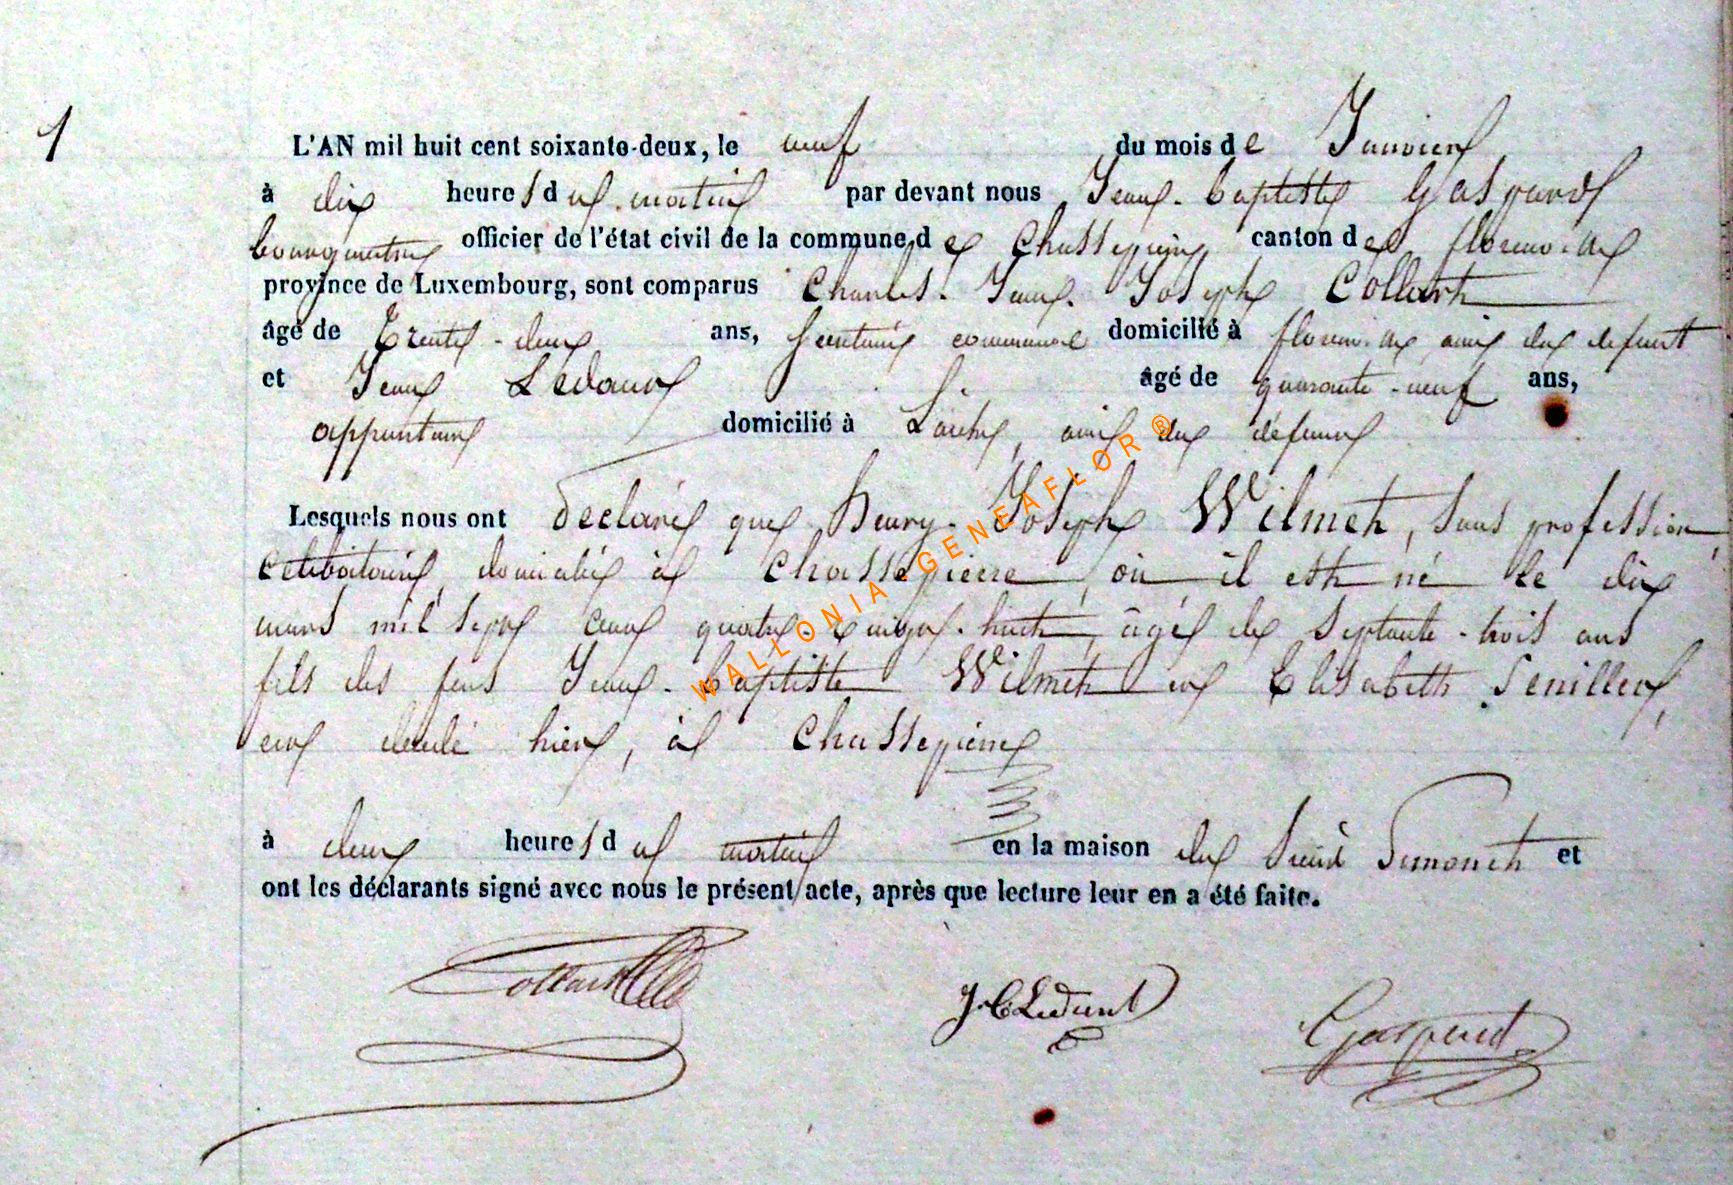 1
L'AN mil huit cent soixante-deux, le neuf du mois de Janvier
à dix heures du matin par devant nous Jean-baptiste Gaspard
bourgmestre officier de l'état civil de la commune de Chassepierre canton de florenville
province de Luxembourg, sont comparus Charles-Jean-Joseph Collart
âgé de Trente-deux ans, secrétaire communal domicilié à florenville, ami du defunt
et Jean Ledant âgé de quarante-neuf ans,
domicilié à Laiche, ami du défunt
Lesquels nous ont déclaré que Henry-Joseph Wilmet, sans profession,
célibataire, domicilié à Chassepierre, où il est né le dix
mars mil sept cent quatre-vingt-huit, âgé de septante-trois ans
fils des feus Jean-baptiste Wilmet et Elisabeth
est décédé hier, à Chassepierre
à deux heures du matin en la maison du Sieur Simonet et
ont les déclarants signé avec nous le présent acte, après que lecture leur en a été faite.
Collart J. B. Ledant Gaspard
WALLONIA-GENEAFLOR ®